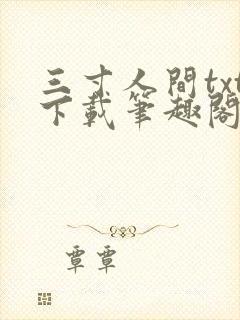 三寸人間txt
下載筆趣閣
覃覃